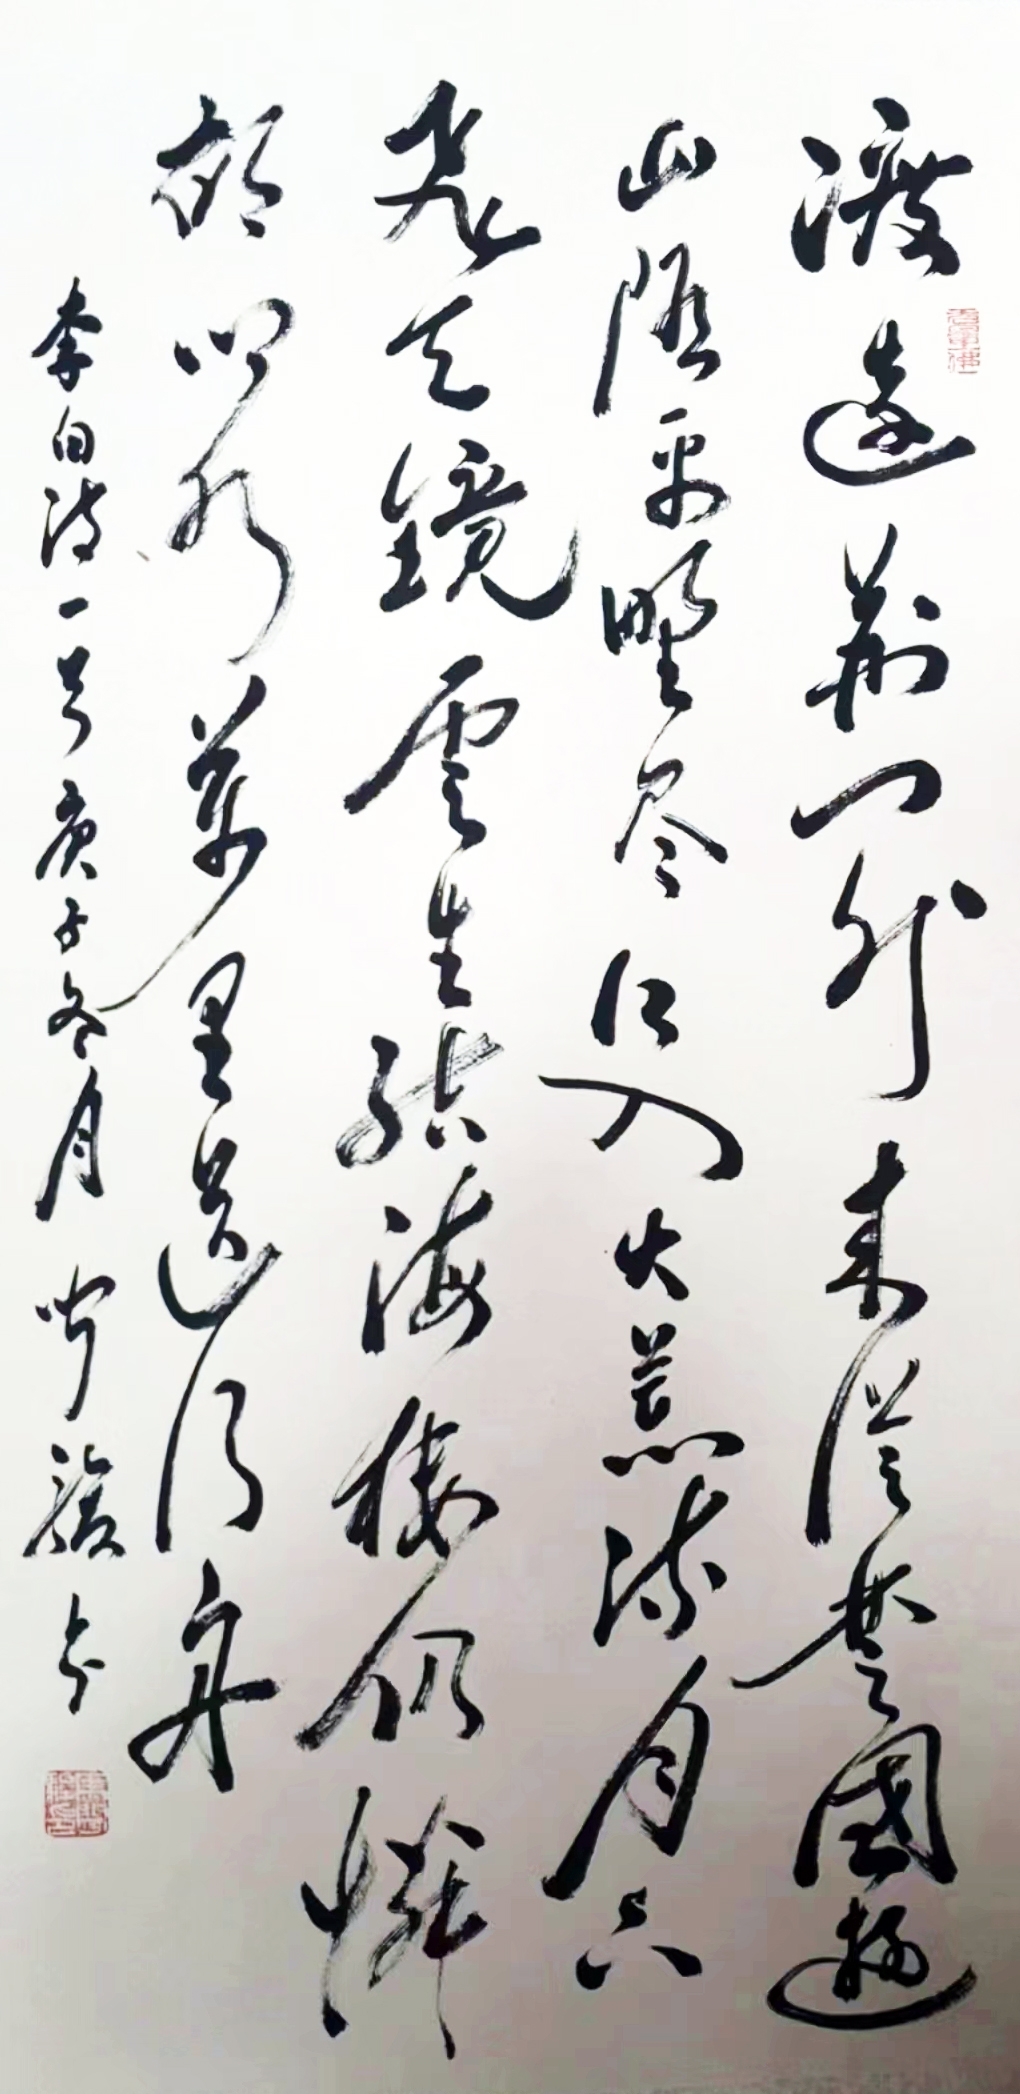 渡遠荆门外来從楚國遊
山随平野尽江入大荒流月下
飛天鏡雲生结海楼仍憐
故鄉水萬里送行舟
李白诗一首庚子冬月